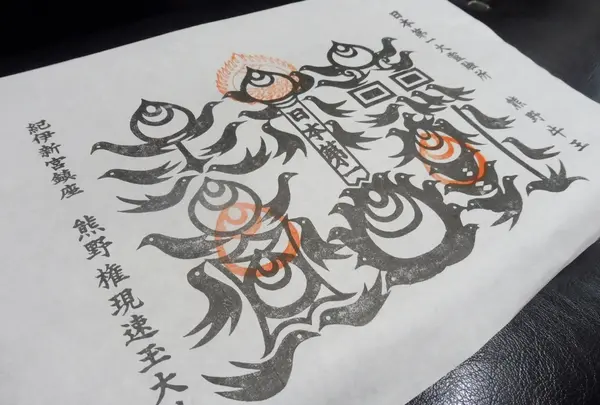 日本第一大霊験所
熊野牛王
日本第一
紀伊新宮鎮座
熊野権現速玉大